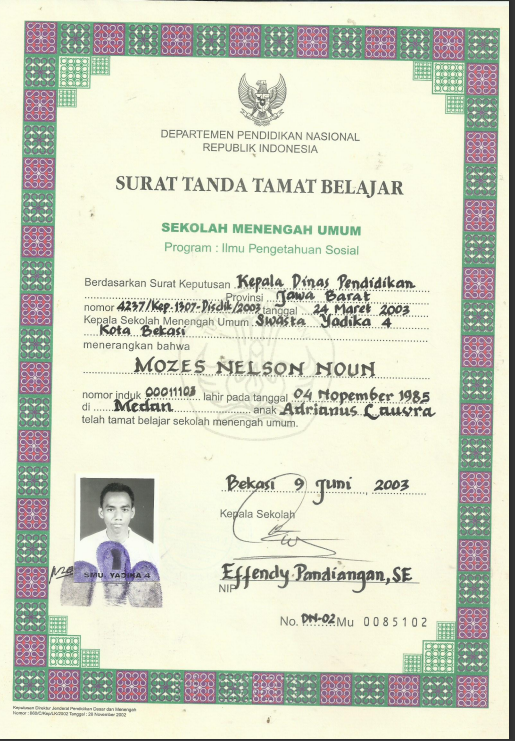 DEPARTEMEN PENDIDIKAN NASIONAL
REPUBLIK INDONESIA
SURAT TANDA TAMAT BELAJAR
SEKOLAH MENENGAH UMUM
Program : Ilmu Pengetahuan Sosial
Berdasarkan Surat Keputusan Kepala Dinas Pendidikan
Provinsi Jawa Barat
nomor 4237/Kep.1307-Disdik/2003 tanggal 24 Maret 2003
Kepala Sekolah Menengah Umum Swasta Yadika 4
Kota Bekasi
menerangkan bahwa
MOZES NELSON NOUN
nomor induk 00011103 lahir pada tanggal 04 Nopember 1985
di Medan anak Adrianus Lauvra
telah tamat belajar sekolah menengah umum.
Bekasi 9 Juni, 2003
Kepala Sekolah
SMU. YADIKA 4
Effendy Pandiangan, SE
NIP
No. DN-02 Mu 0085102
Keputusan Direktur Jenderal Pendidikan Dasar dan Menengah
Nomor : 669/C/Kep/LK/2002 Tanggal : 26 November 2002